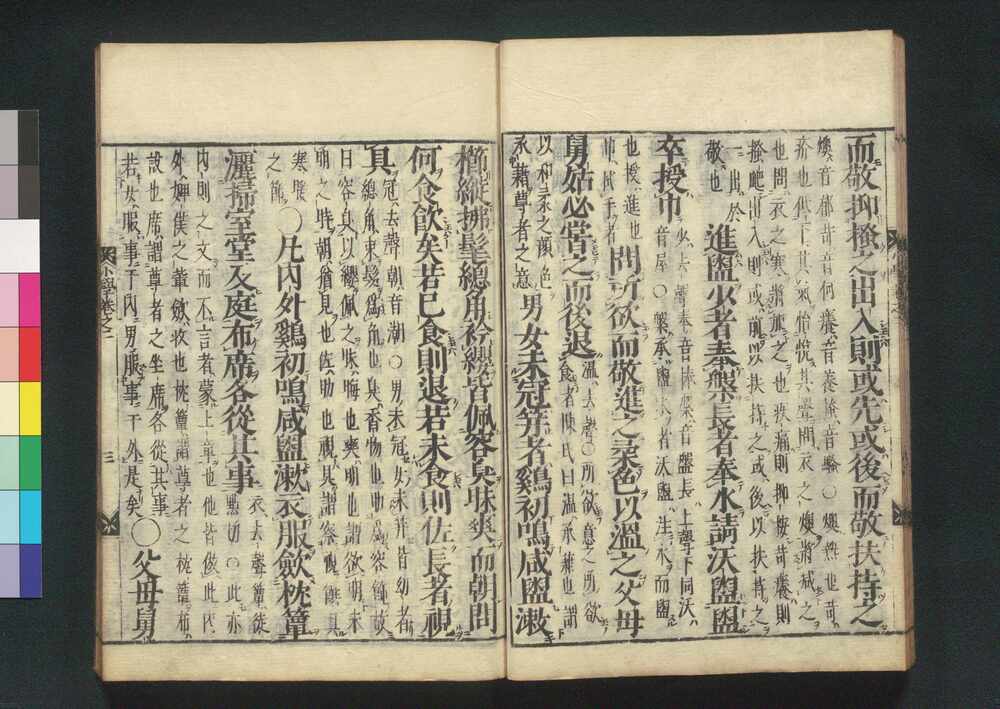 而敬抑掻之出入則或先或後而敬扶持之
燠音郁苛音何癢音養掻音騷○燠煖也苛
疥也低下其氣怡悅其聲問衣之燠將減之
也問衣之寒將加之也疾痛則抑按苛癢則
掻爬出入則或前以扶持之或後以扶持之
一出於
敬也
進盥少者奉槃長者奉水請沃盥盥
卒授巾
少去聲奉音捧槃音盤長上聲下同沃
音屋○槃承盥水者沃盥注水而盥
也授進也
巾拭手者
問所欲而敬進之柔色以溫之父母
舅姑必嘗之而後退
溫去聲○所欲意之所欲
食者陳氏曰溫承藉也謂
以和柔之顏色
承藉尊者之意
男女未冠笄者雞初鳴咸盥漱
櫛縰拂髦總角衿纓皆佩容臭昧爽而朝問
何食飲矣若已食則退若未食則佐長者視
具
冠去聲朝音潮○男未冠女未笄皆幼者
總角束髮爲角也臭香物也助爲容餙故
曰容臭以纓佩之昧晦也爽明也謂欲明未
明之時朝猶見也佐助也視具謂察視其饌
寒暖
之節
○凡內外雞初鳴咸盥漱衣服歛枕簟
灑掃室堂及庭布席各從其事
衣去聲簟徒
點切○此亦
內則之文而不言者蒙上章也他皆倣此內
外婢僕之輩歛收也枕簟謂尊者之枕簟布
設也席謂尊者之坐席各從其事
若女服事于內男服事于外是矣
○父母舅
小學卷之二
三